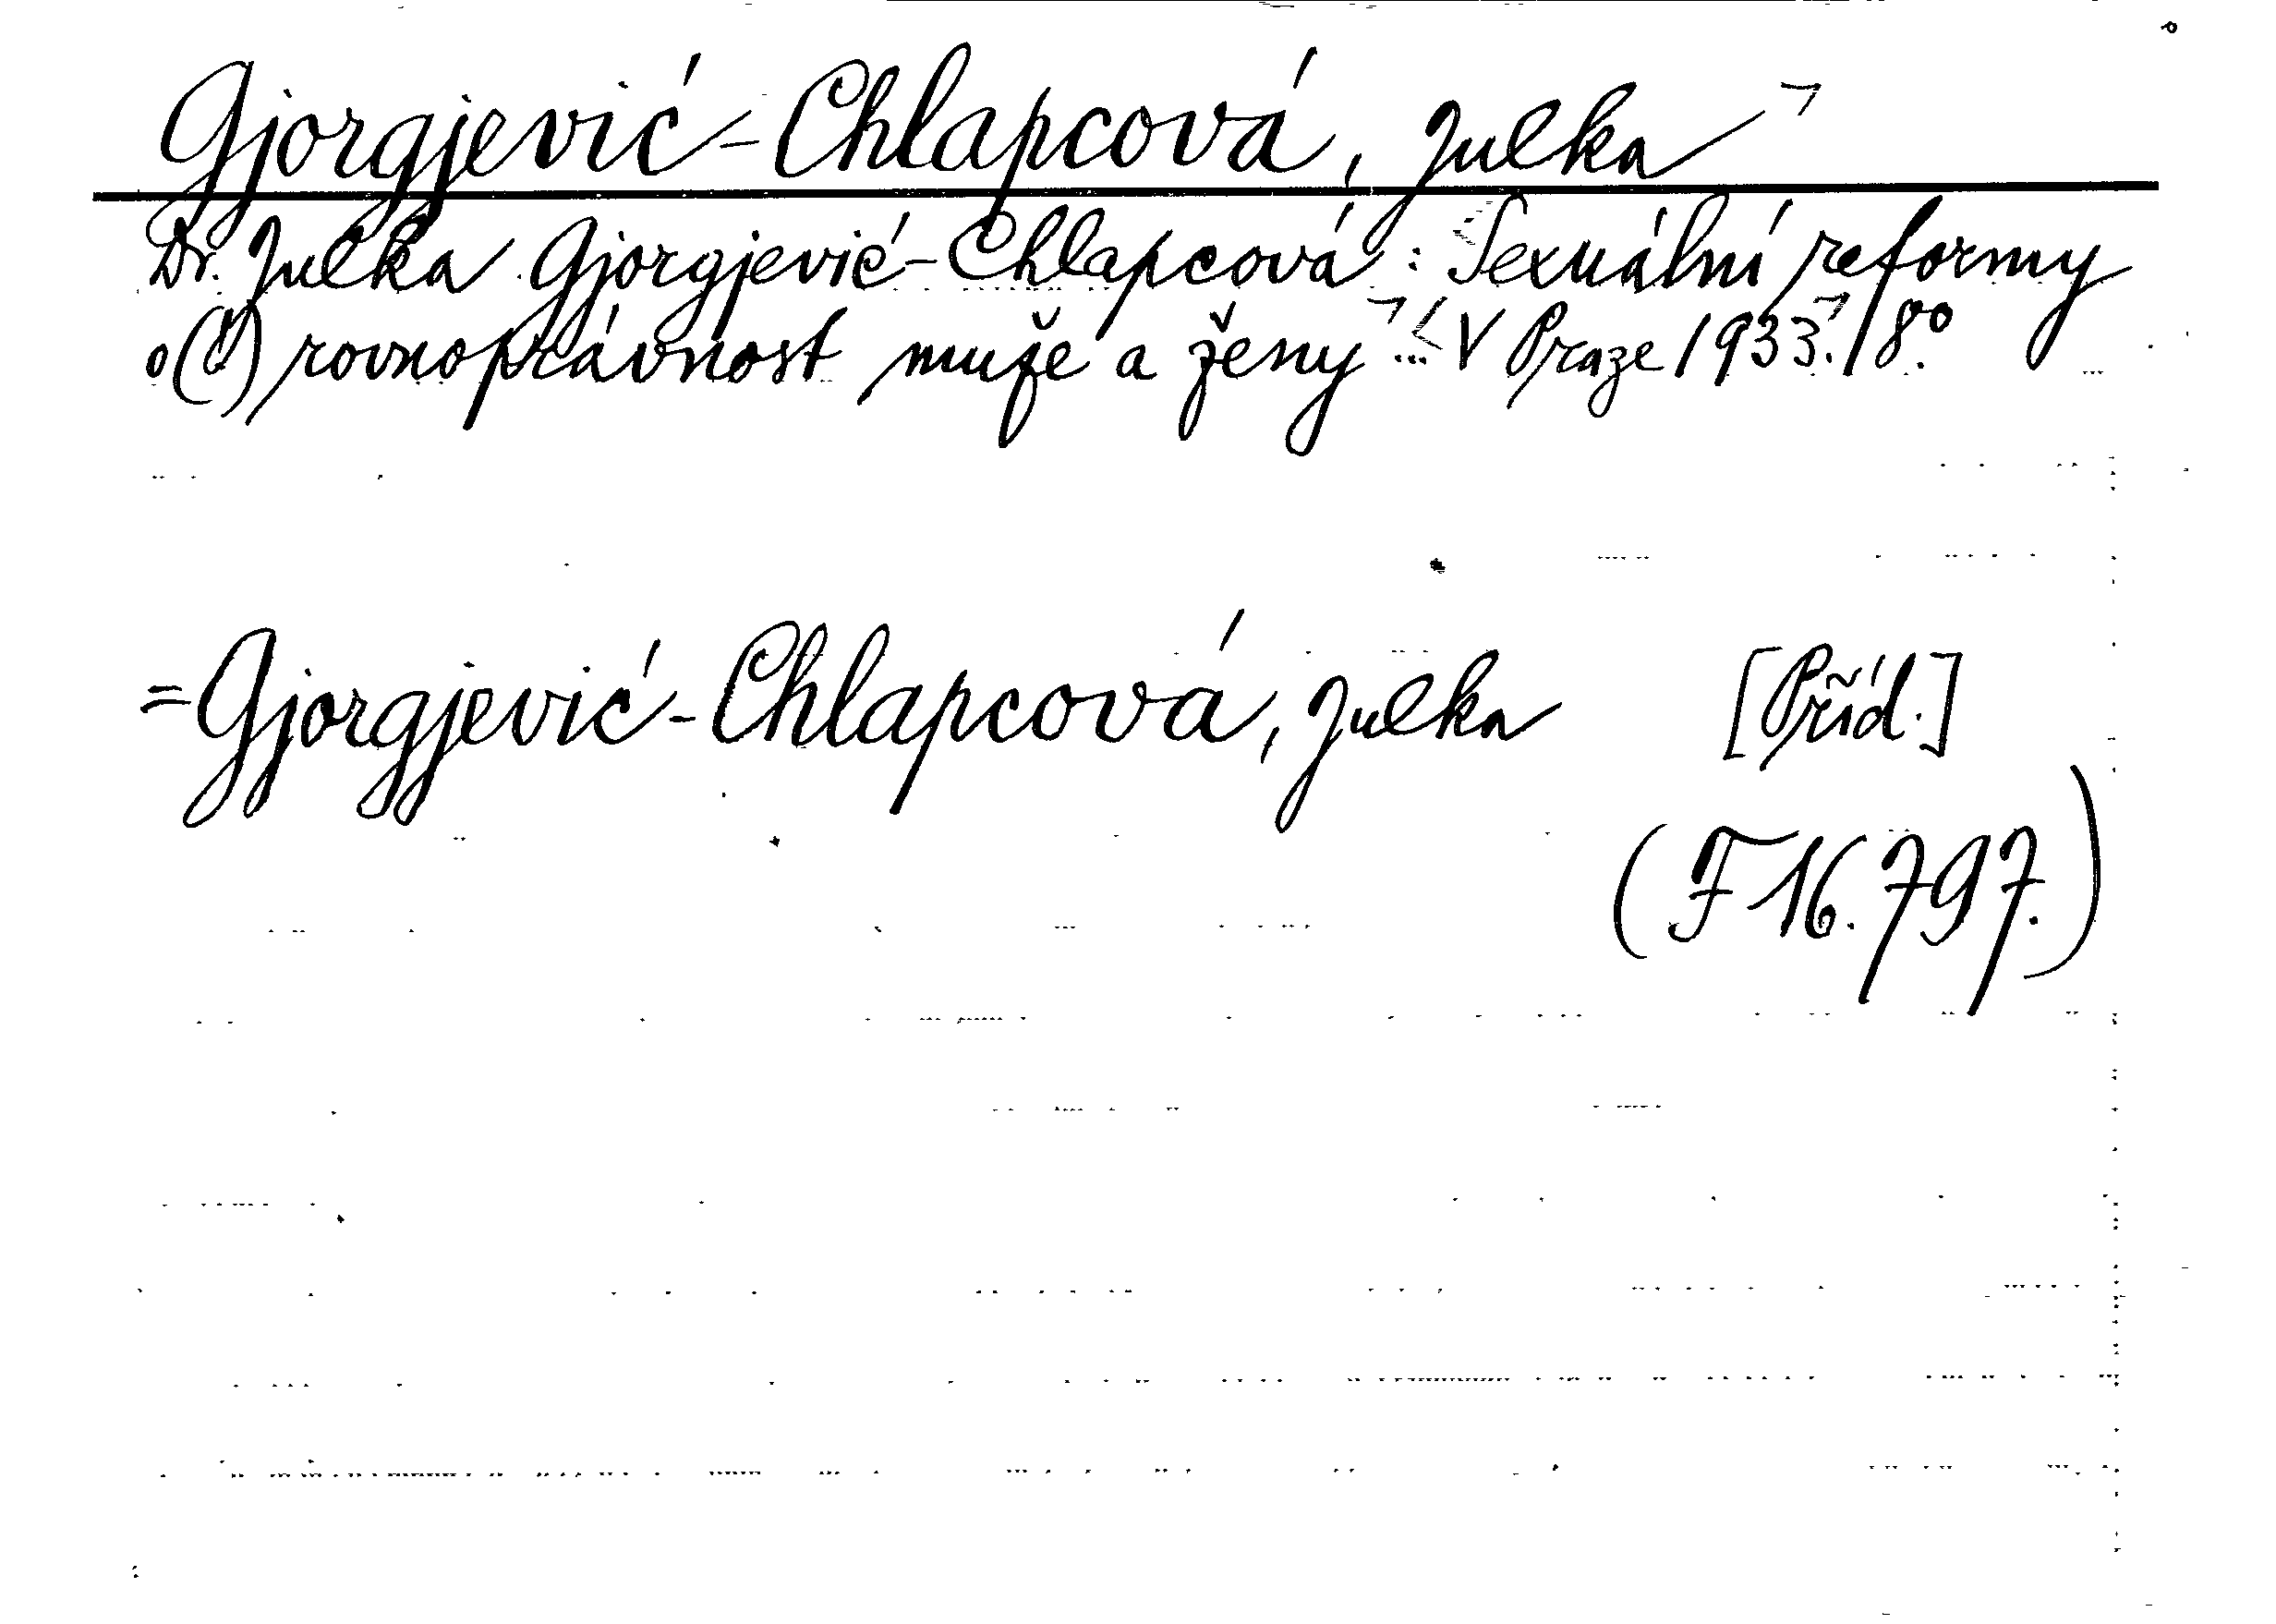 Gjorgjević-Chlapcová, Julka
Dr. Julka Gjorgjević-Chlapcová: Sexuální reformy
o (!) rovnoprávnost muže a ženy ... V Praze 1933. 8°.
=Gjorgjević-Chlapcová, Julka [Příd.]
(F 16.797.)